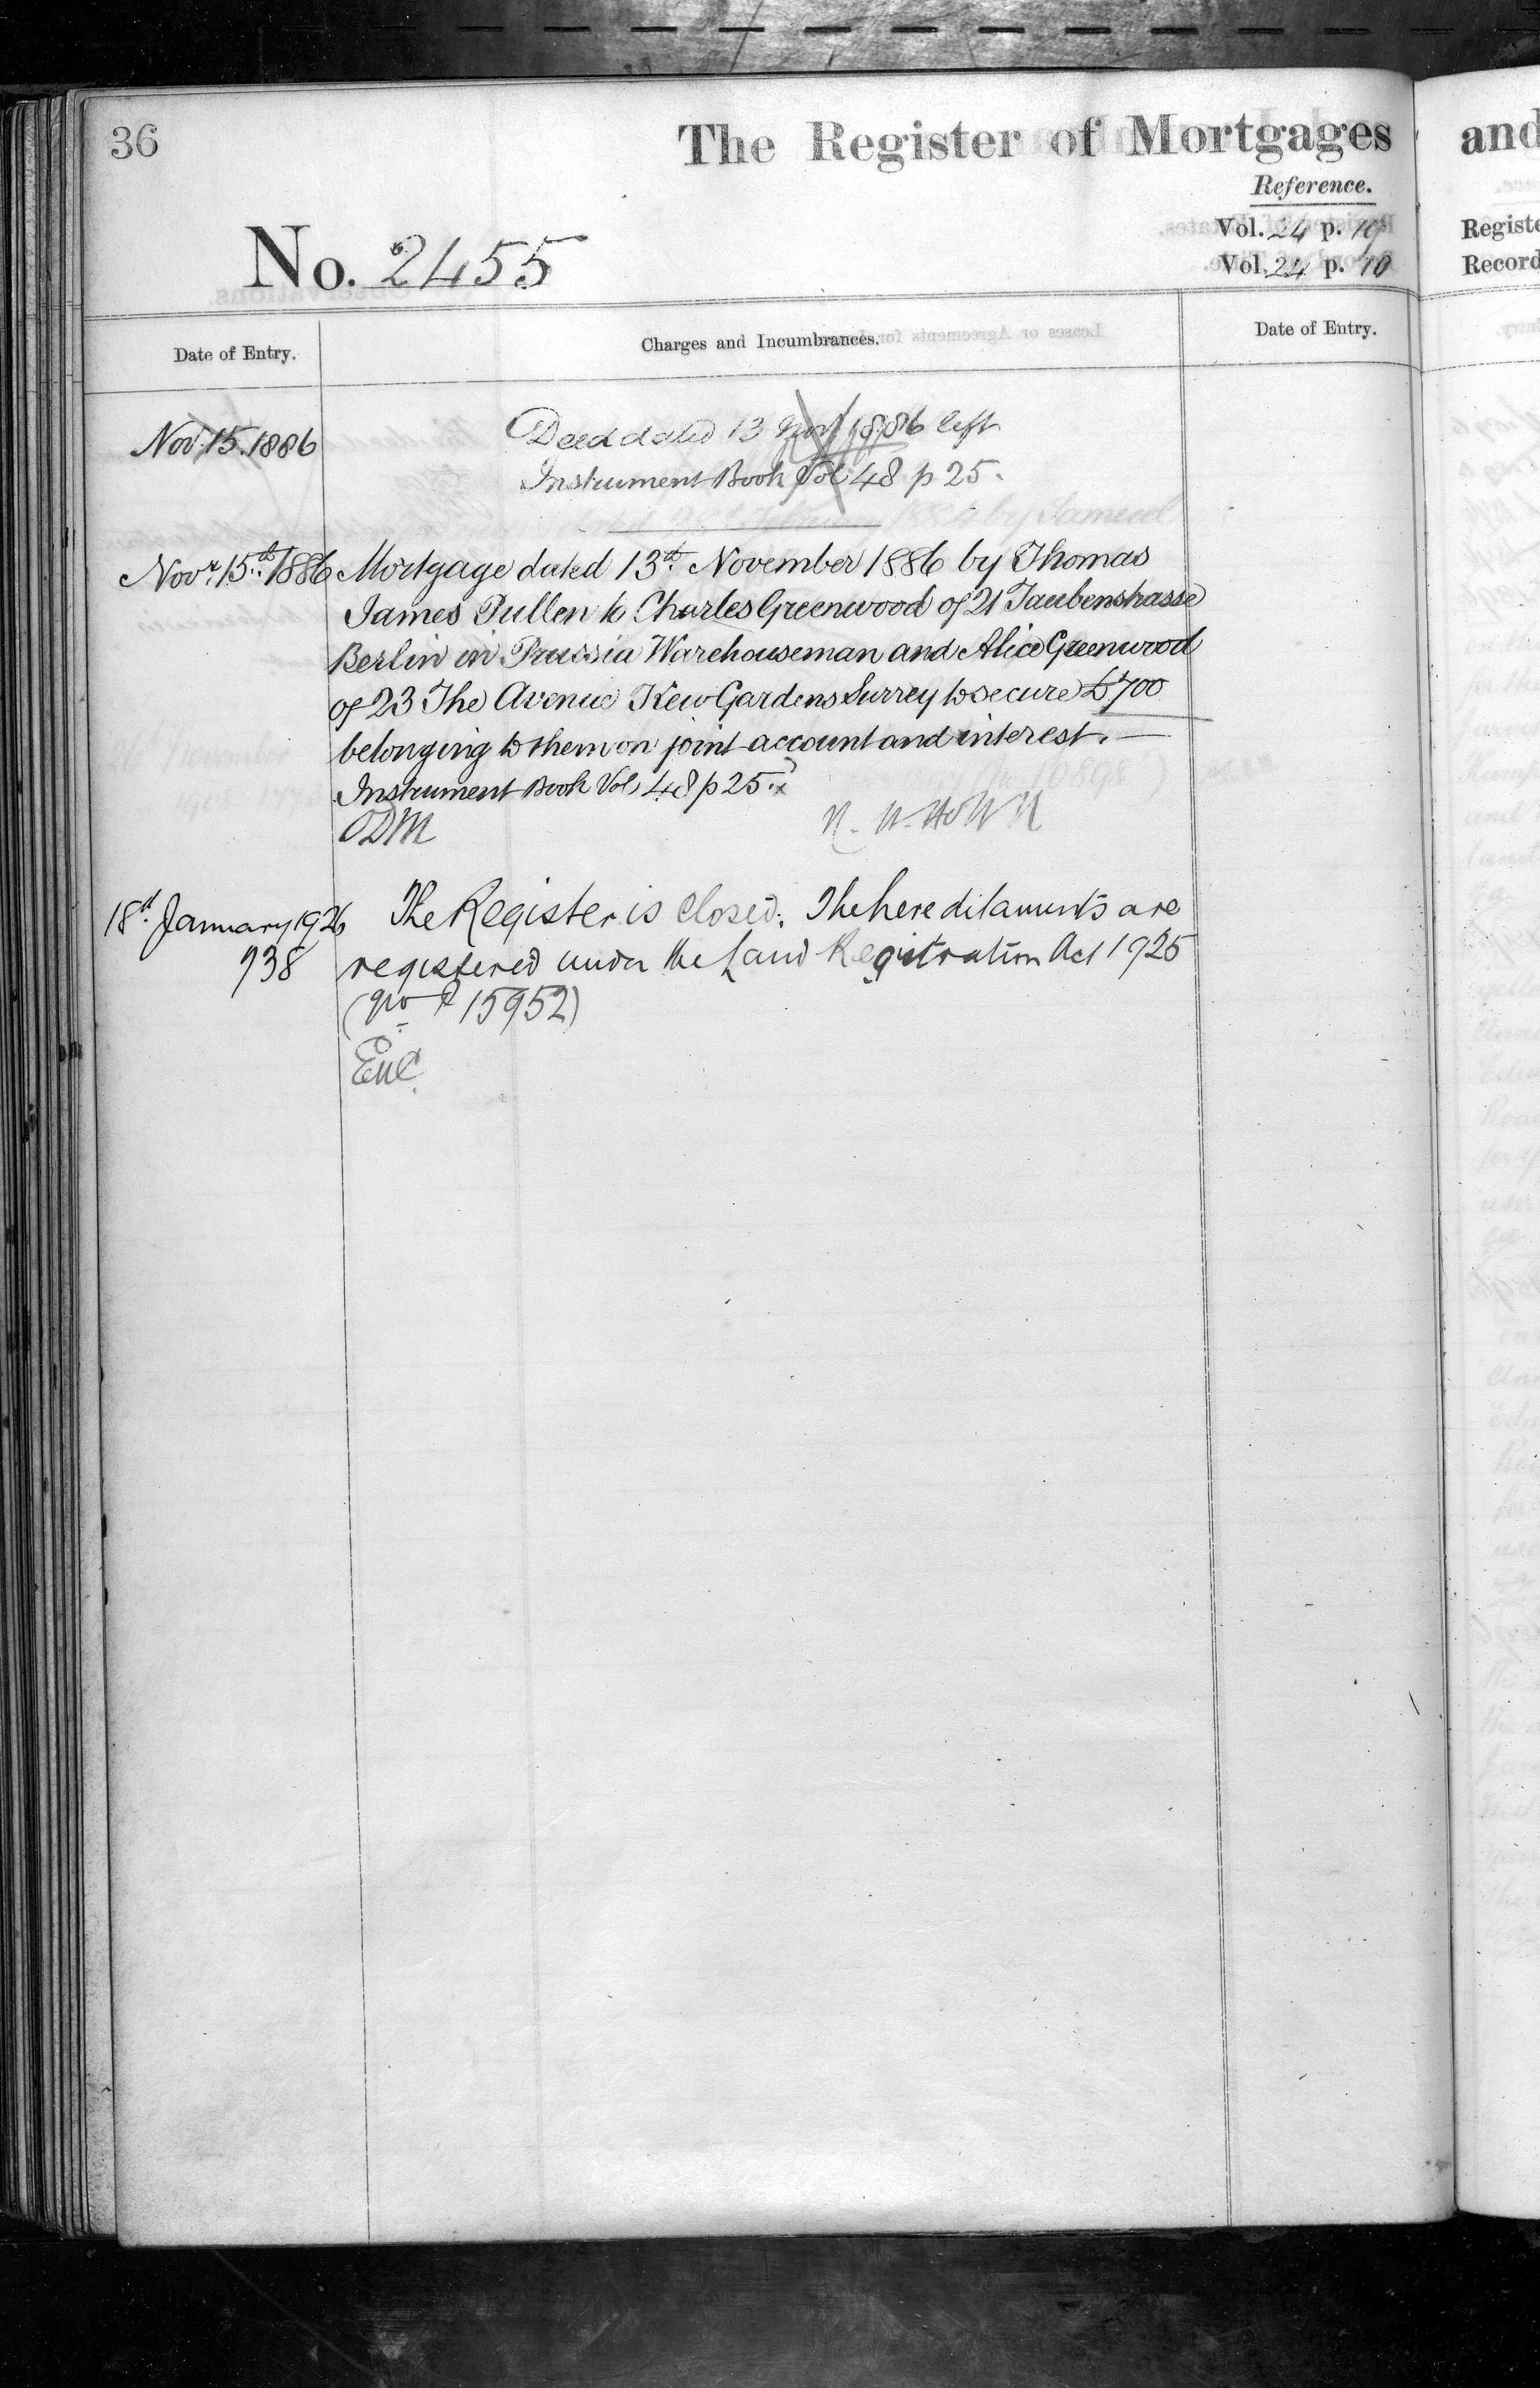 36
The Register of Mortgages
and
Reference.
Vol. 24 p. 19
Vol. 24 p. 10
Registe
Record
No. 2455
Date of Entry.
Charges and Incumbrances.
Date of Entry.
Nov. 15. 1886
Deed dated 13 Nov 1886 left
Instrument Book Vol 48 p 25.
Novr. 15th. 1886
Mortgage dated 13th. November 1886 by Thomas
James Pullen to Charles Greenwood of 21 Taubenstrasse
Berlin in Prussia Warehouseman and Alice Greenwood
of 23 The Avenue Kew Gardens Surrey to secure £700
belonging to them on joint account and interest. —
Instrument Book Vol 48 p 25.
ODM
18th. January 1926
938
The Register is closed. The hereditaments are
registered under the Land Registration Act 1925
(No P 15952)